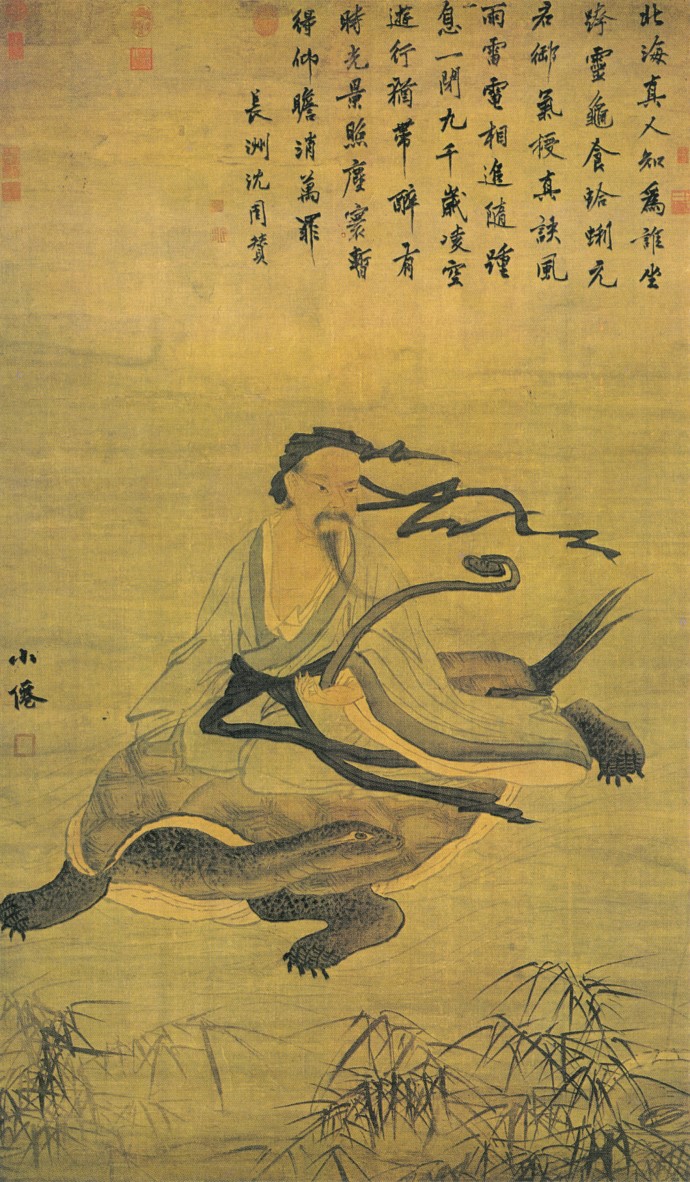 北海真人知為誰坐
跨靈龜食蛤蜊元
君御氣授真訣風
雨雷電相追隨踵
息一閉九千歲凌空
遊行猶帶醉有
時光景照塵寰暫
得仰瞻消萬罪
長洲沈周贊
小僊